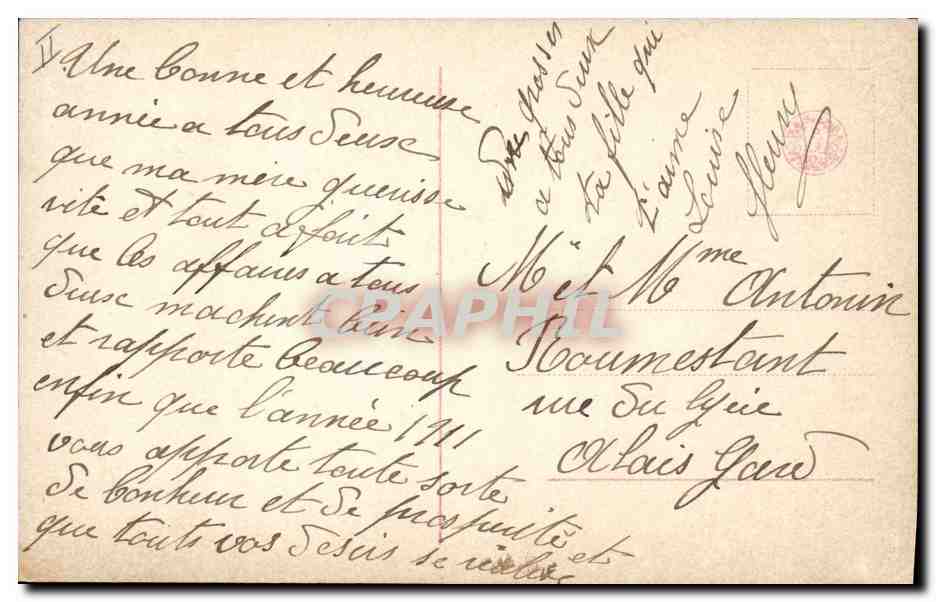 II
Une bonne et heureuse
année a tous deux
que ma mère guerisse
vite et tout afait
que les affaires a tous
deux machent bien
et rapporte beaucoup
enfin que l'année 1911
vous apporte toute sorte
de bonheur et de prosperité et
que touts vos desirs se realise
grosses
a tous deux
ta fille qui
t'aime
Louise
Fleury
Mr et Mme Antonin
Roumestant
rue du lycée
Alais Gard
CPAPHIL